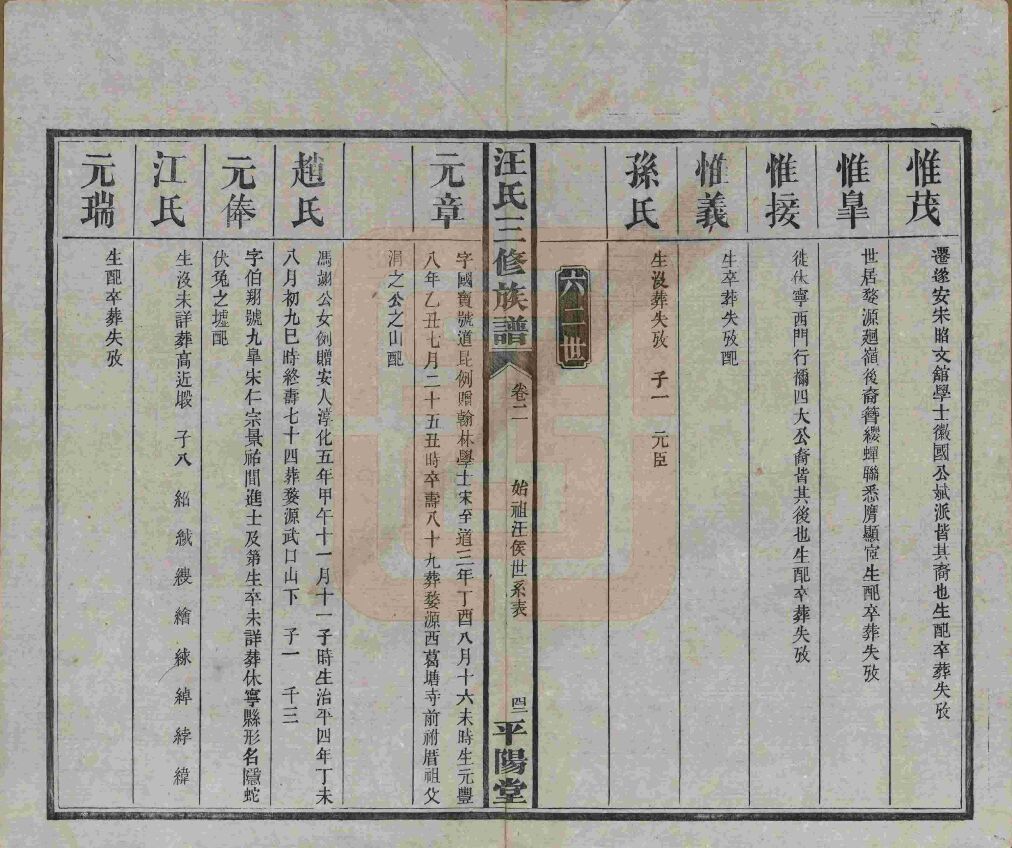 惟茂
遷遂安宋昭文館學士徽國公斌派皆其裔也生配卒葬失攷
惟臯
世居婺源廻嶺後裔簪纓蟬聯悉膺顯宦生配卒葬失攷
惟接
徙休寧西門行禰四大公裔皆其後也生配卒葬失攷
惟義
生卒葬失攷配
孫氏
生沒葬失攷 子一 元臣
六二世
汪氏三修族譜 卷二 始祖汪侯世系表 平陽堂
元章
字國寶號道昆例贈翰林學士宋至道三年丁酉八月十六未時生元豐
八年乙丑七月二十五丑時卒壽八十九葬婺源西葛塘寺前祔厝祖父
涓之公之山配
趙氏
馮翊公女例贈安人淳化五年甲午十一月十一子時生治平四年丁未
八月初九巳時終壽七十四葬婺源武口山下 子一 千三
元俸
字伯翔號九臯宋仁宗景祐間進士及第生卒未詳葬休寧縣形名隱蛇
伏兔之墟配
江氏
生沒未詳葬高近塅 子八 紹 緎 綬 繪 綠 綽 綍 緯
元瑞
生配卒葬失攷